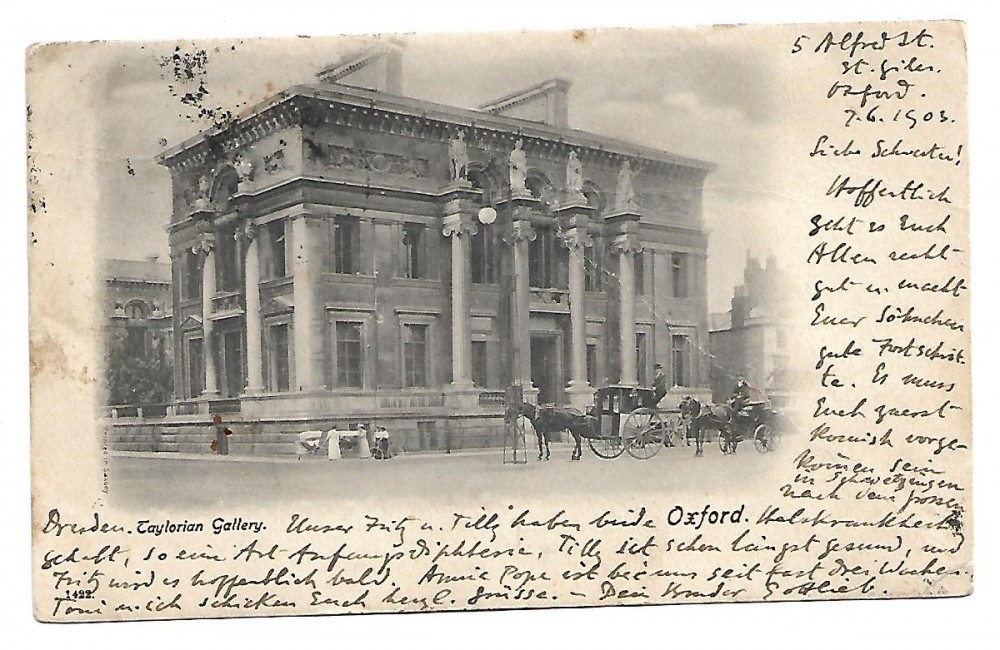 5 Alfred St.
St. Giles.
Oxford.
7.6.1903.
Liebe Schwester!
Hoffentlich
geht es Euch
Allen recht
gut u. macht
Euer Söhnchen
gute Fortschrit-
te. Es muss
Euch zuerst
komisch vorge-
kommen sein
in Schwetzingen
nach dem grossen
Dresden. Taylorian Gallery. Unser Fritz u. Tilly haben beide Oxford. Halskrankheit
gehabt, so eine Art Anfangsdiphterie, Tilly ist schon längst gesund, und
Fritz wird es hoffentlich bald. Annie Pope ist bei uns seit fast drei Wochen.
1422. Toni u. ich schicken Euch herzl. Grüsse. – Dein Bruder Gottlieb.